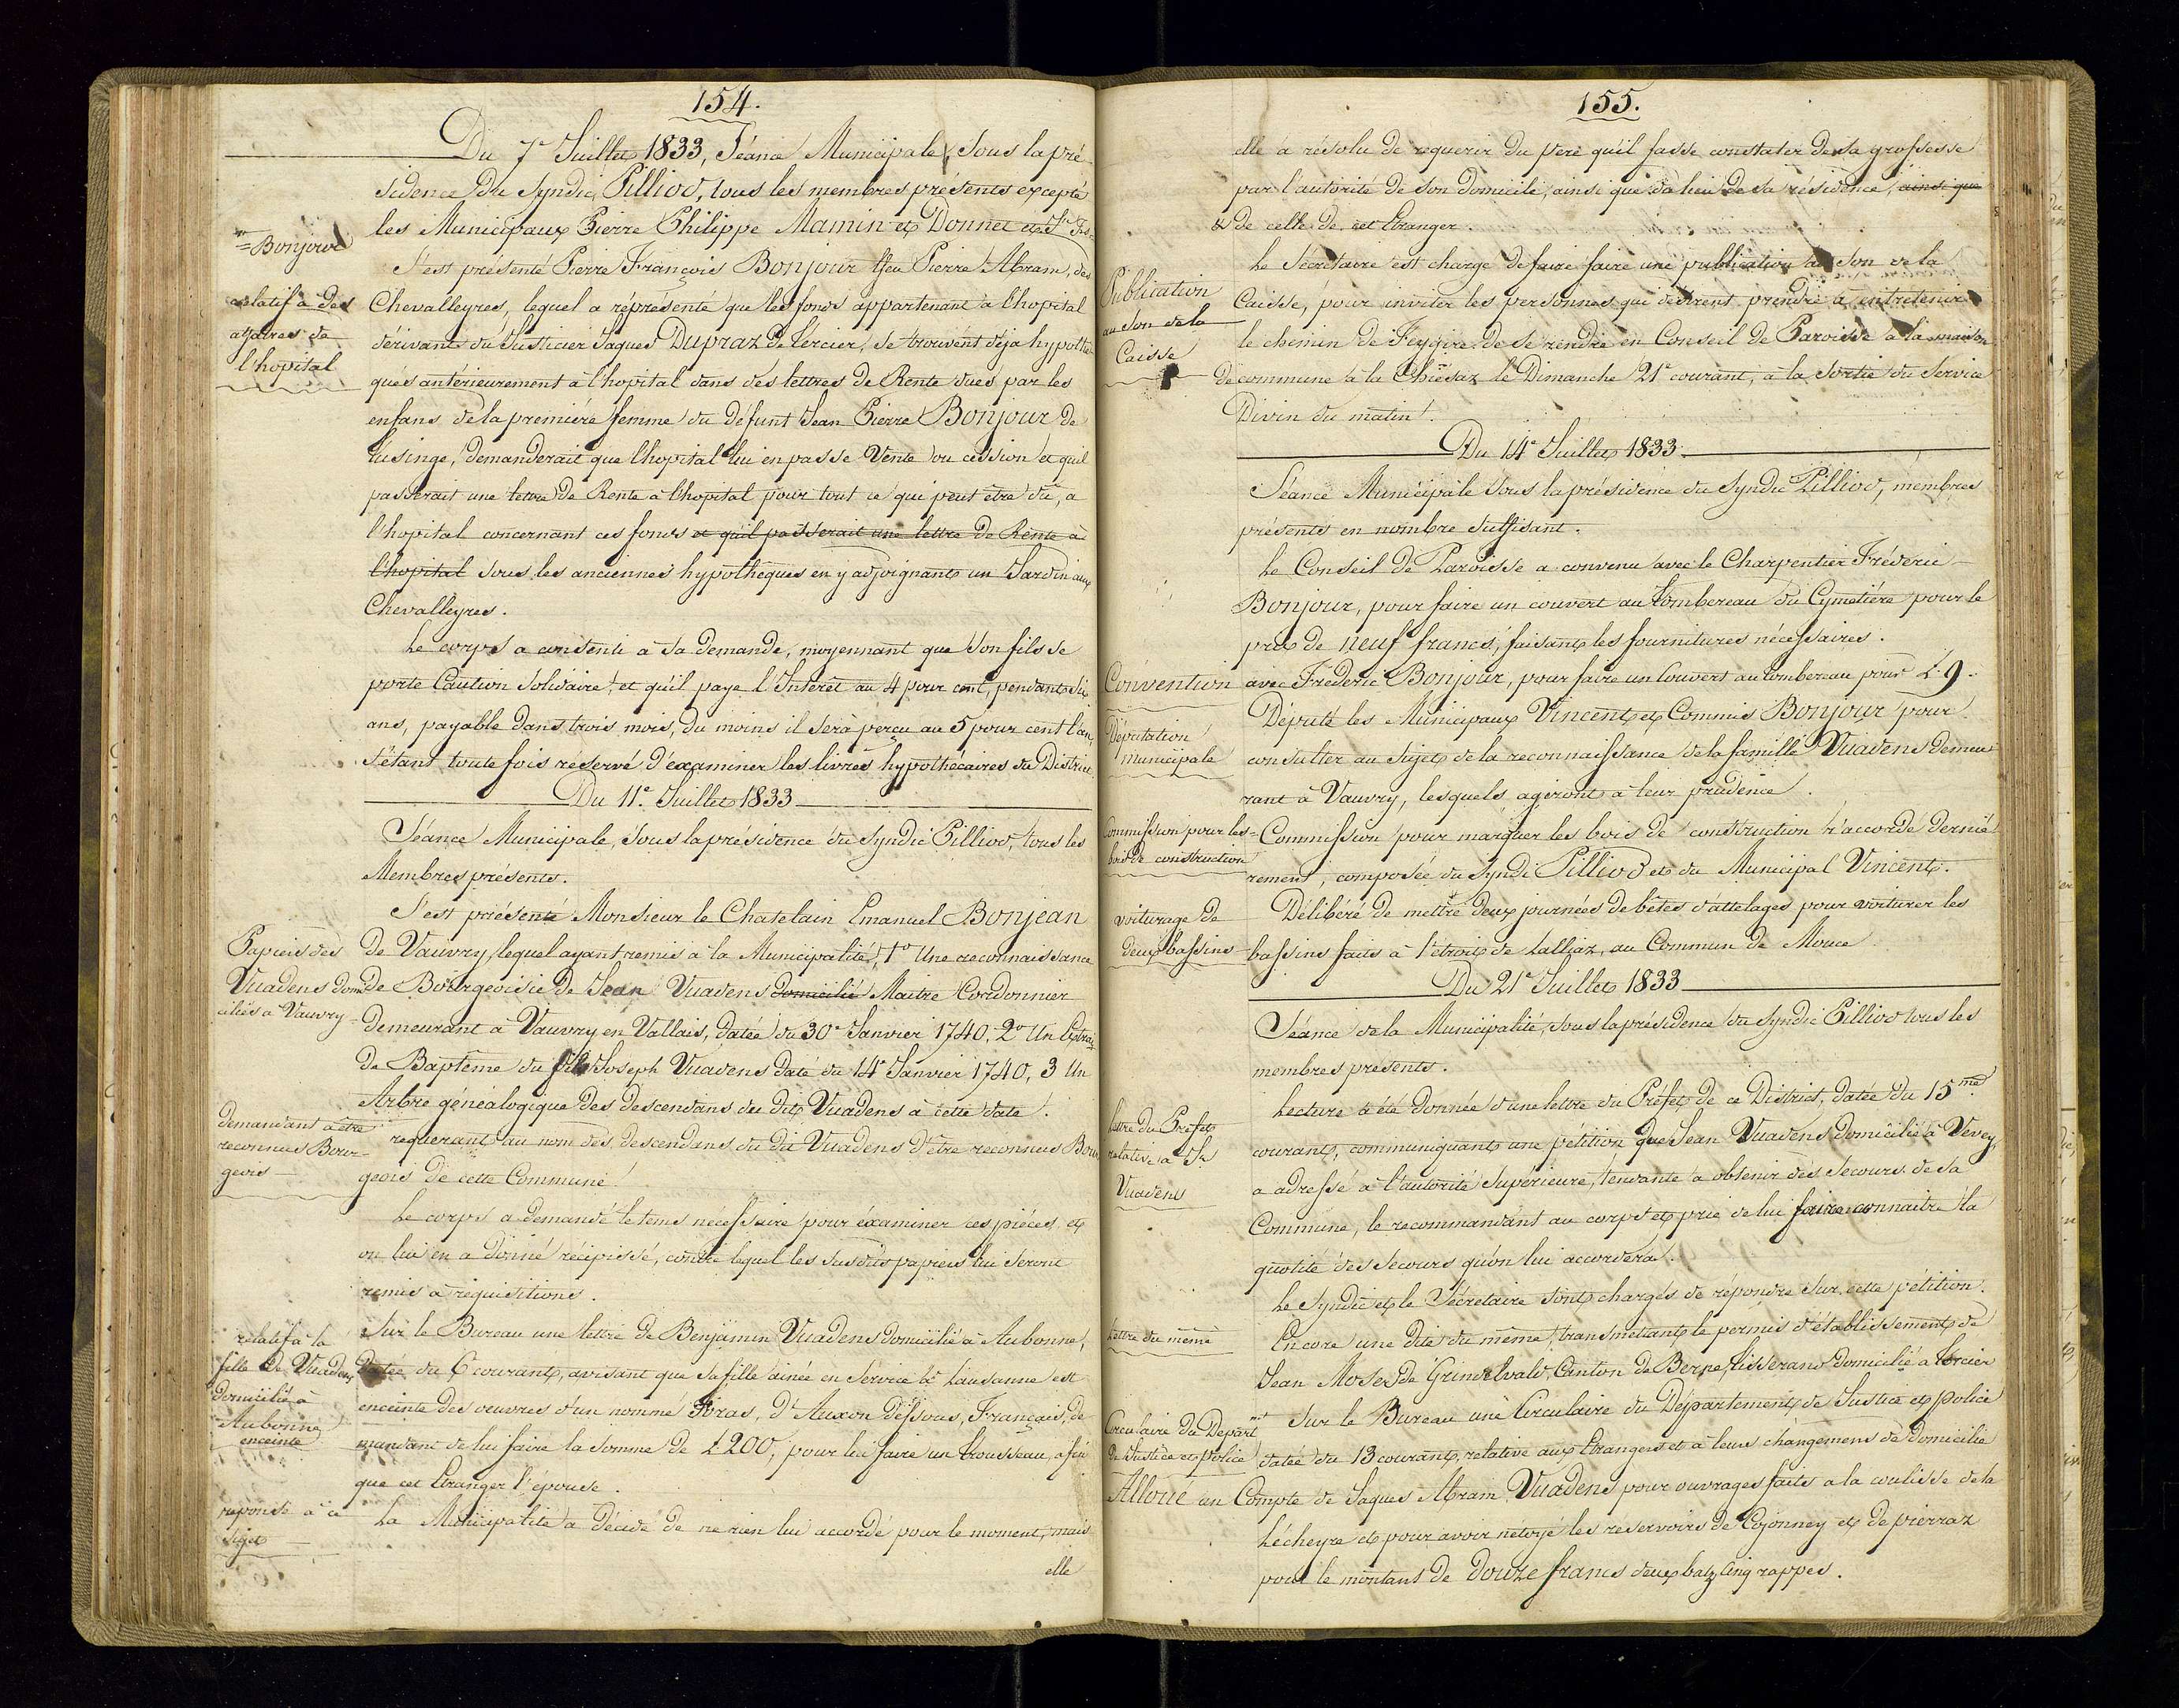 154.
Du 7e Juillet 1833, Séance Municipale, sous la pré-
sidence du syndic Pilliod, tous les membres présents excepté
les Municipaux Pierre Philippe Mamin et Donnet
=Bonjour
relatif à des
affaires de
l'hopital
S'est présenté Pierre François Bonjour ffeu Pierre Abram, des
Chevalleyres, lequel a réprésenté que les fonds appartenant à l'hopital
dérivant du Justicier Jaques Dupraz de Tercier, se trouvent déja hypothé-
qués antérieurement à l'hopital dans des lettres de Rente dues par les
enfans de la premiére femme du défunt Jean Pierre Bonjour de
Lusinge, demanderait que l'hopital lui en passe Vente ou cession et quil
passerait une lettre de Rente à l'hopital pour tout ce qui peut être dû, a
l'hopital concernant ces fonds et qu'il passerait une lettre de Rente à
l'hopital sous les anciennes hypothèques en y adjoignant un Jardin aux
Chevalleyres.
Le corps a consenti a sa demande, moyennant que son fils se
porte Caution solidaire, et qu'il paye l'Interêt au 4 pour cent, pendant six
ans, payable dans trois mois, du moins il sera perçu au 5 pour cent l'an,
s'étant toute fois réservé d'éxaminer les livres hypothécaires du District.
Du 11e. Juillet 1833
Séance Municipale, sous la présidence du syndic Pilliod, tous les
Membres présents.
Papiers des
Vuadens domi-
ciliés à Vauvry
S'est présenté Monsieur le Chatelain Emanuel Bonjean
de Vauvry, lequel ayant remis à la Municipalité, 1o Une reconnaissance
de Bourgeoisie de Jean Vuadens domicilié Maitre Cordonnier
demeurant à Vauvry en Vallais, datée du 30e Janvier 1740. 2o Un Extrait
de Baptême du fils Joseph Vuadens daté du 14e Janvier 1740, 3 Un
Arbre généalogique des descendans du dit Vuadens à cette date.
demandant à être
reconnus Bour-
geois
requerant au nom des descendans du dit Vuadens d'être reconnus Bour-
geois de cette Commune.
Le corps a demandé le tems nécessaire pour éxaminer ces piéces, et
on lui en a donné récipissé, contre lequel les susdits papiers lui seront
remis à réquisitions.
relatif à la
fille de Vuadens
domicilié à
Aubonne
enceinte
Sur le Bureau une lettre de Benjamin Vuadens domicilié à Aubonne,
datée du 6e courant, avisant que sa fille ainée en service à Lausanne est
enceinte des œuvres d'un nommé Foras, d'Auxon déssous, Français, de-
mandant de lui faire la somme de L 200, pour lui faire un trousseau, afin
que cet Etranger l'épouse.
reponse à ce
sujet
La Municipalité a décidé de ne rien lui accordé pour le moment, mais
elle
155.
elle a résolu de requerir du pere qu'il fasse constater de sa grossesse
par l'autorité de son domicile, ainsi que du lieu de sa résidence, ainsi que
& de celle de cet Etranger.
Publication
au son de la
Caisse
Le Secrétaire est chargé de faire faire une publication au son de la
Caisse, pour inviter les personnes qui désirent prendre à entretenir
le chemin de Feygire de se rendre en Conseil de Paroisse à la maison
de commune à la Chiésaz le Dimanche 21e courant, à la sortie du service
Divin du matin.
Du 14e Juillet 1833.
Séance Municipale sous la présidence du Syndic Pilliod, membres
présents en nombre suffisant.
Le Conseil de Paroisse a convenu avec le Charpentier Fréderic
Bonjour, pour faire un couvert au tombereau du Cymetière pour le
prix de neuf francs, faisant les fournitures nécessaires.
Convention avec Fréderic Bonjour, pour faire un Couvert au tombereau pour L 9.
Députation
municipale
Députe les Municipaux Vincent et Commis Bonjour pour
consulter au sujet de la reconnaissance de la famille Vuadens demeu-
rant à Vauvry, lesquels agiront à leur prudence.
Commission pour les
bois de construction
Commission pour marquer les bois de construction r'accordé derniè-
rement, composée du Syndic Pilliod et du Municipal Vincent.
voiturage de
deux bassins
Délibéré de mettre deux journées de bêtes d'attelages pour voiturer les
bassins faits à l'étroit de Lalliaz, au Commun de Mouce
Du 21e Juillet 1833
Séance de la Municipalité, sous la présidence du Syndic Pilliod tous les
membres présents.
lettre du Préfet
relative à Jn
Vuadens
Lecture a été donnée d'une lettre du Préfet de ce District, datée du 15me
courant, communiquant une pétition que Jean Vuadens domicilié à Vevey,
a adressé à l'autorité Supérieure, tendante a obtenir des secours de sa
Commune, le recommandant au corps et prie de lui faire connaitre la
quotité des secours qu'on lui accordera.
Le Syndic et le Sécretaire sont chargés de répondre sur cette pétition.
Lettre du même
Encore une dite du même, transmettant le permis d'établissement de
Jean Moser de Grindelvald, Canton de Berne, tisserand domicilié à Tercier
Circulaire du Départmt
de Justice et police
Sur le Bureau une Circulaire du Département de Justice et police
datée du 13 courant, relative aux Etrangers et à leurs changemens de domicile
Alloué un Compte de Jaques Abram Vuadens pour ouvrages faits a la coulisse de la
Lécheyre et pour avoir netoyé les reservoirs de Cojonney et de pierraz
pour le montant de douze francs deux batz cinq rappes.